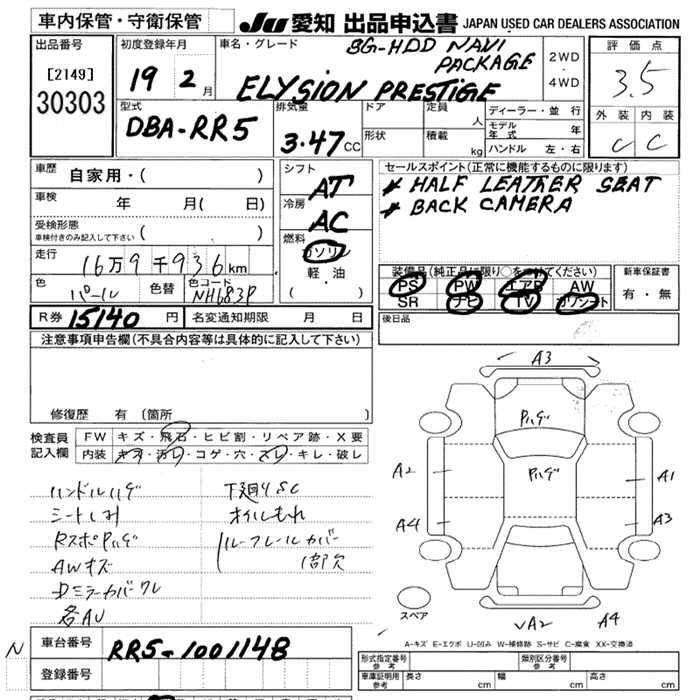 車内保管・守衛保管
JU 愛知 出品申込書 JAPAN USED CAR DEALERS ASSOCIATION
出品番号
[2149]
30303
初度登録年月
19 2月
車名・グレード
8G-HDD NAVI PACKAGE
ELYSION PRESTIGE
2WD・4WD
評価点
3.5
外装 内装
C C
型式
DBA-RR5
排気量
3.47 CC
ドア
形状
定員 人
積載 kg
ディーラー・並行
モデル年式 年
ハンドル 左・右
車歴 自家用・( )
車検 年 月( 日)
受検形態
車検付きのみ記入して下さい ( )
走行 16万9千936km
色 パール
色替
色コード NH683P
シフト AT
冷房 AC
燃料 ガソリン
軽・油
( )
セールスポイント(正常に機能するものに限ります)
* HALF LEATHER SEAT
* BACK CAMERA
装備品(純正品に限り○をつけてください)
PS PW エアB AW
SR ナビ TV カワシート
新車保証書
有・無
R券 15140 円 名変通知期限 月 日
後日品
注意事項申告欄(不具合内容等は具体的に記入して下さい)
修復歴 有 〔箇所
検査員記入欄
FW キズ・飛石・ヒビ割・リペア跡・X要
内装 キズ・汚レ・コゲ・穴・スレ・キレ・破レ
ハンドルハゲ
シートしみ
RスポPハゲ
AWキズ
Dミラーカバーワレ
各AU
下廻りSC
オイルもれ
ルーフレールカバー
1部欠
A3
Pハゲ
Pハゲ
A2
A4
A1
A3
スペア
A2
A4
A-キズ E-エクボ U-凹み W-補修跡 S-サビ C-腐食 XX-交換済
N
車台番号 RR5-1001148
登録番号
形式指定番号 参考
類別区分番号 参考
車庫証明用 参考
長さ cm 幅 cm 高さ cm